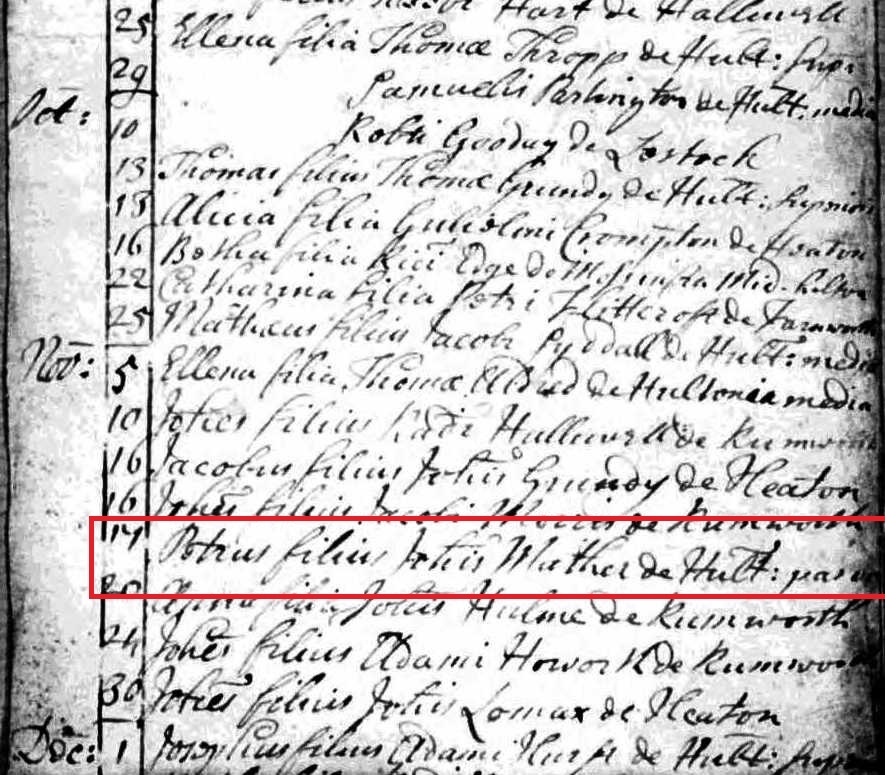 Hart de Halliwell
25 Ellena filia Thomæ Thropp de Hult: Sup:
29 Samuelis Partington de Hult: media
Oct: 10 Robti Gooday de Lostock
13 Thomas filius Thomæ Grundy de Hult: Superiori
15 Alicia filia Gulielmi Crompton de Heaton
16 Betha filia Rici Edge de infra Mid: hulton
22 Catharina filia Petri Flitcroft de Farnworth
25 Matheus filius Jacobi Syddall de Hult: media
Nov: 5 Ellena filia Thomæ Aldred de Hultonia media
10 Johes filius Radi Hallewell de Rumworth
16 Jacobus filius Johis Grundy de Heaton
16 Johes filius Jacobi Morris de Rumworth
17 Petrus filius Johis Mather de Hult: parva
filia Johis Hulme de Rumworth
24 Johes filius Adami Howorth de Rumworth
30 Johes filius Johis Lomax de Heaton
Dec: 1 Josephus filius Adami Hurst de Hult: Super